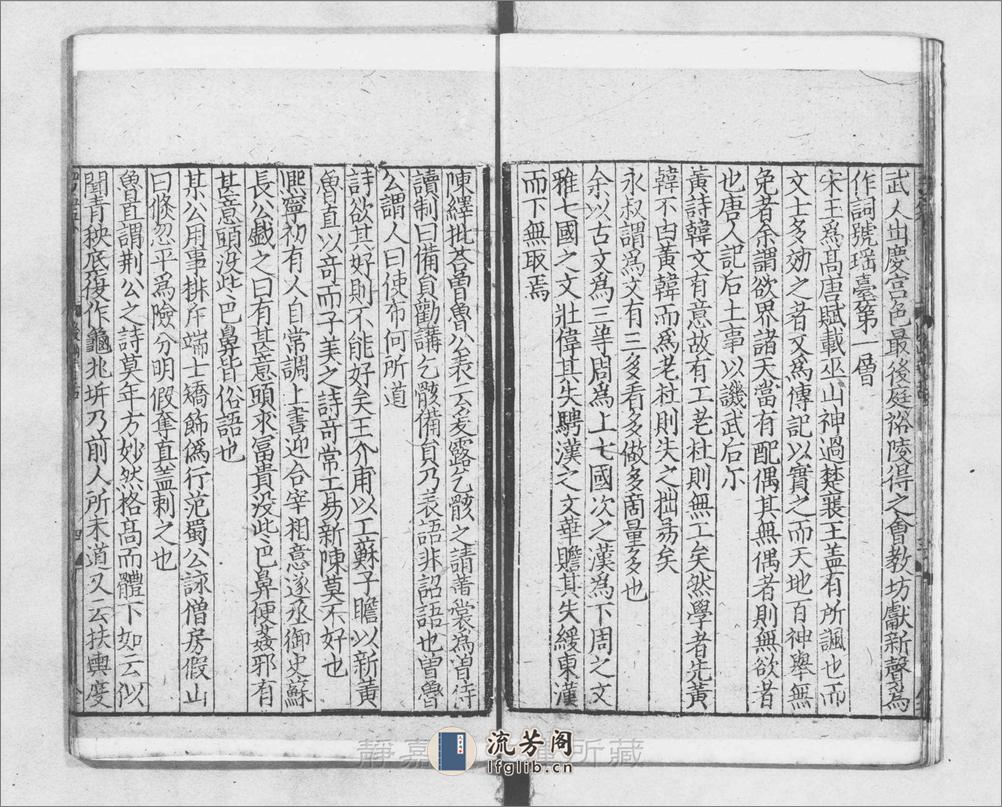 武人出慶宫色最後庭裕陵得之會教坊獻新聲爲
作詞號瑶臺第一層
宋玉爲髙唐賦載巫山神遇楚襄王盖有所諷也而
文士多効之者又爲傳記以實之而天地百神舉無
免者余謂欲界諸天當有配偶其無偶者則無欲者
也唐人記后土事以譏武后尓
黄詩韓文有意故有工老杜則無工矣然學者先黄
韓不由黄韓而爲老杜則失之拙昜矣
永叔謂爲文有三多看多做多啇量多也
余以古文爲三等周爲上七國次之漢爲下周之文
雅七國之文壯偉其失騁漢之文華贍其失緩東漢
而下無取焉
陳繹批荅曽魯公表云爰露乞骸之請黄裳爲曽侍
讀制曰備員勸講乞骸備員乃表語非詔語也曽魯
公謂人曰使布何所道
詩欲其好則不能好矣王介甫以工蘇子瞻以新黄
魯直以竒而子美之詩竒常工昜新陳莫不好也
熈寧初有人自常調上書迎合宰相意遂丞御史蘇
長公戯之曰有甚意頭求冨貴没些巴鼻便姦邪有
甚意頭没些巴鼻皆俗語也
某公用事排斥端士矯飾僞行范蜀公詠僧房假山
曰倐忽平爲險分明假奪真盖刺之也
魯直謂荆公之詩莫年方妙然格髙而體下如云似
聞青秧底復作龜兆坼乃前人所未道又云扶輿度
靜嘉 所藏
流芳阁
lfglib.cn